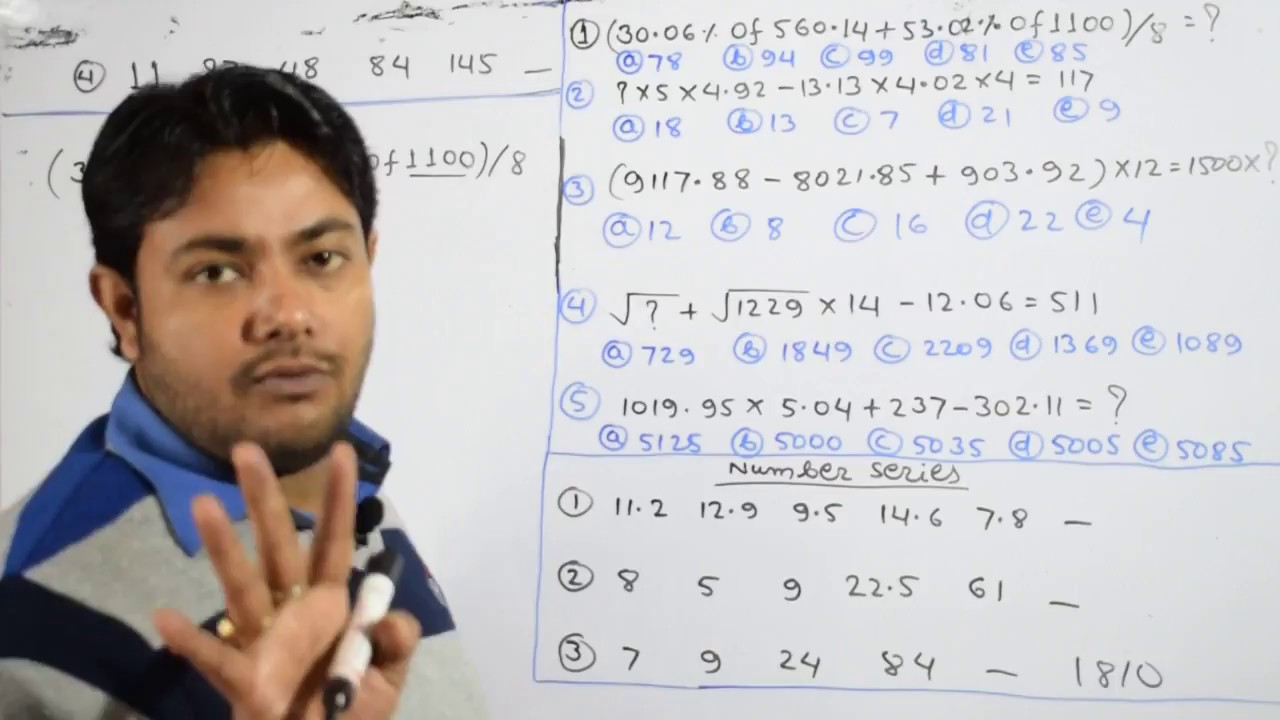 ④ 11 48 84 145 _
( of 1100)/8
① (30.06% of 560.14 + 53.02% of 1100)/8 = ?
ⓐ 78 ⓑ 94 ⓒ 99 ⓓ 81 ⓔ 85
② ? × 5 × 4.92 - 13.13 × 4.02 × 4 = 117
ⓐ 18 ⓑ 13 ⓒ 7 ⓓ 21 ⓔ 9
③ (9117.88 - 8021.85 + 903.92) × 12 = 1500 × ?
ⓐ 12 ⓑ 8 ⓒ 16 ⓓ 22 ⓔ 4
④ √? + √1229 × 14 - 12.06 = 511
ⓐ 729 ⓑ 1849 ⓒ 2209 ⓓ 1369 ⓔ 1089
⑤ 1019.95 × 5.04 + 237 - 302.11 = ?
ⓐ 5125 ⓑ 5000 ⓒ 5035 ⓓ 5005 ⓔ 5085
Number series
① 11.2 12.9 9.5 14.6 7.8 _
② 8 5 9 22.5 61 _
③ 7 9 24 84 _ 1810